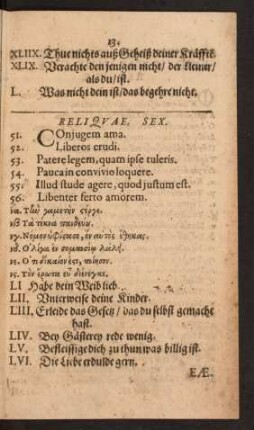 13.
XLIIX. Thue nichts auß Geheiß deiner Kräffte
XLIX. Verachte den jenigen nicht / der kleiner /
als du / ist.
L. Was nicht dein ist / das begehre nicht.
RELIQVAE, SEX.
51. Conjugem ama.
52. Liberos erudi.
53. Patere legem, quam ipse tuleris.
54. Pauca in convivio loquere.
55. Illud stude agere, quod justum est.
56. Libenter ferto amorem.
να. Τὴν γαμετὴν
νβ. Τὰ τέκνα
νδ. Ὀλίγα ἐν συμποσίῳ λάλει.
LI Habe dein Weib lieb.
LII. Unterweise deine Kinder.
LIII. Erleide das Gesetz / das du selbst gemacht
hast.
LIV. Bey Gästerey rede wenig.
LV. Befleissige dich zu thun was billig ist.
LVI. Die Liebe erdulde gern.
EÆ.